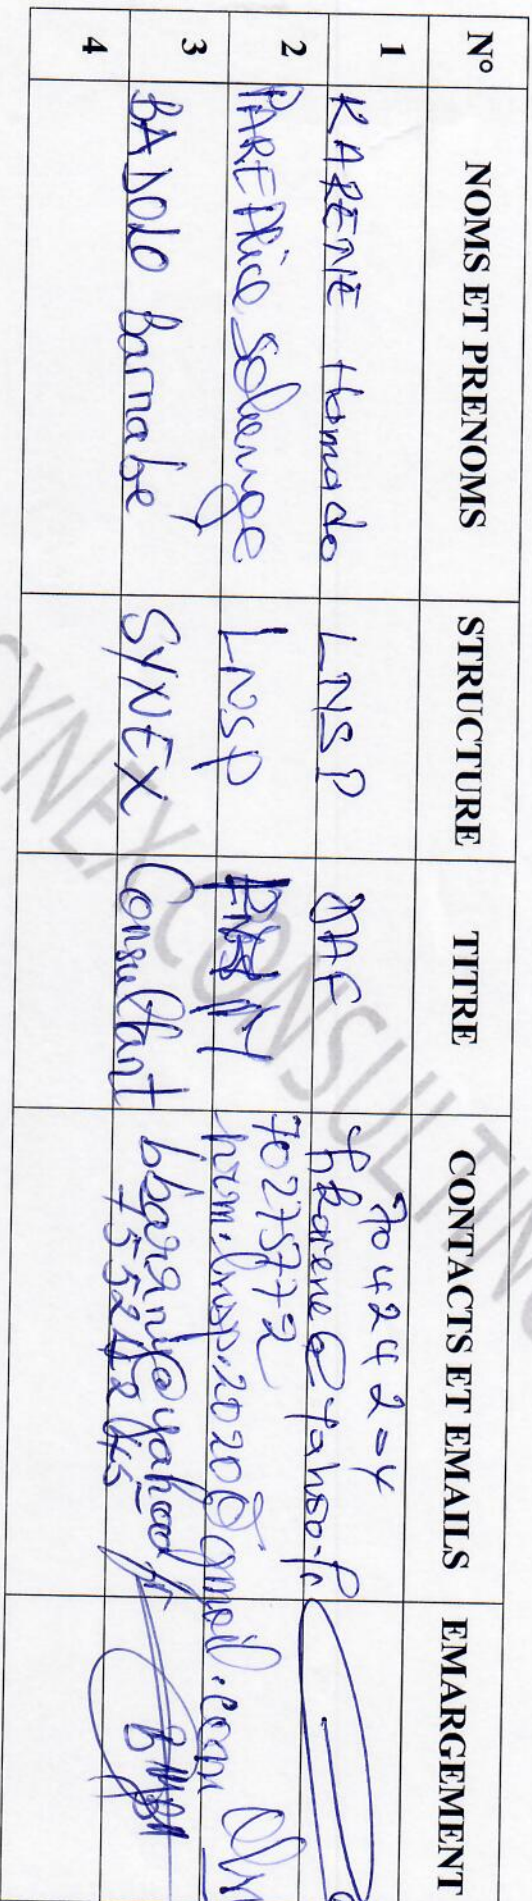 N° NOMS ET PRENOMS STRUCTURE TITRE CONTACTS ET EMAILS EMARGEMENT
1 KARENE Hamado LNSP DAF 70 42 42 04
hkarene@yahoo.fr
2 PARE Alice Solange LNSP 70275772
hirm.lnsp.2020@gmail.com
3 BADOLO Barnabe SYNEX Consultant
75524245
4
SYNEX CONSULTING